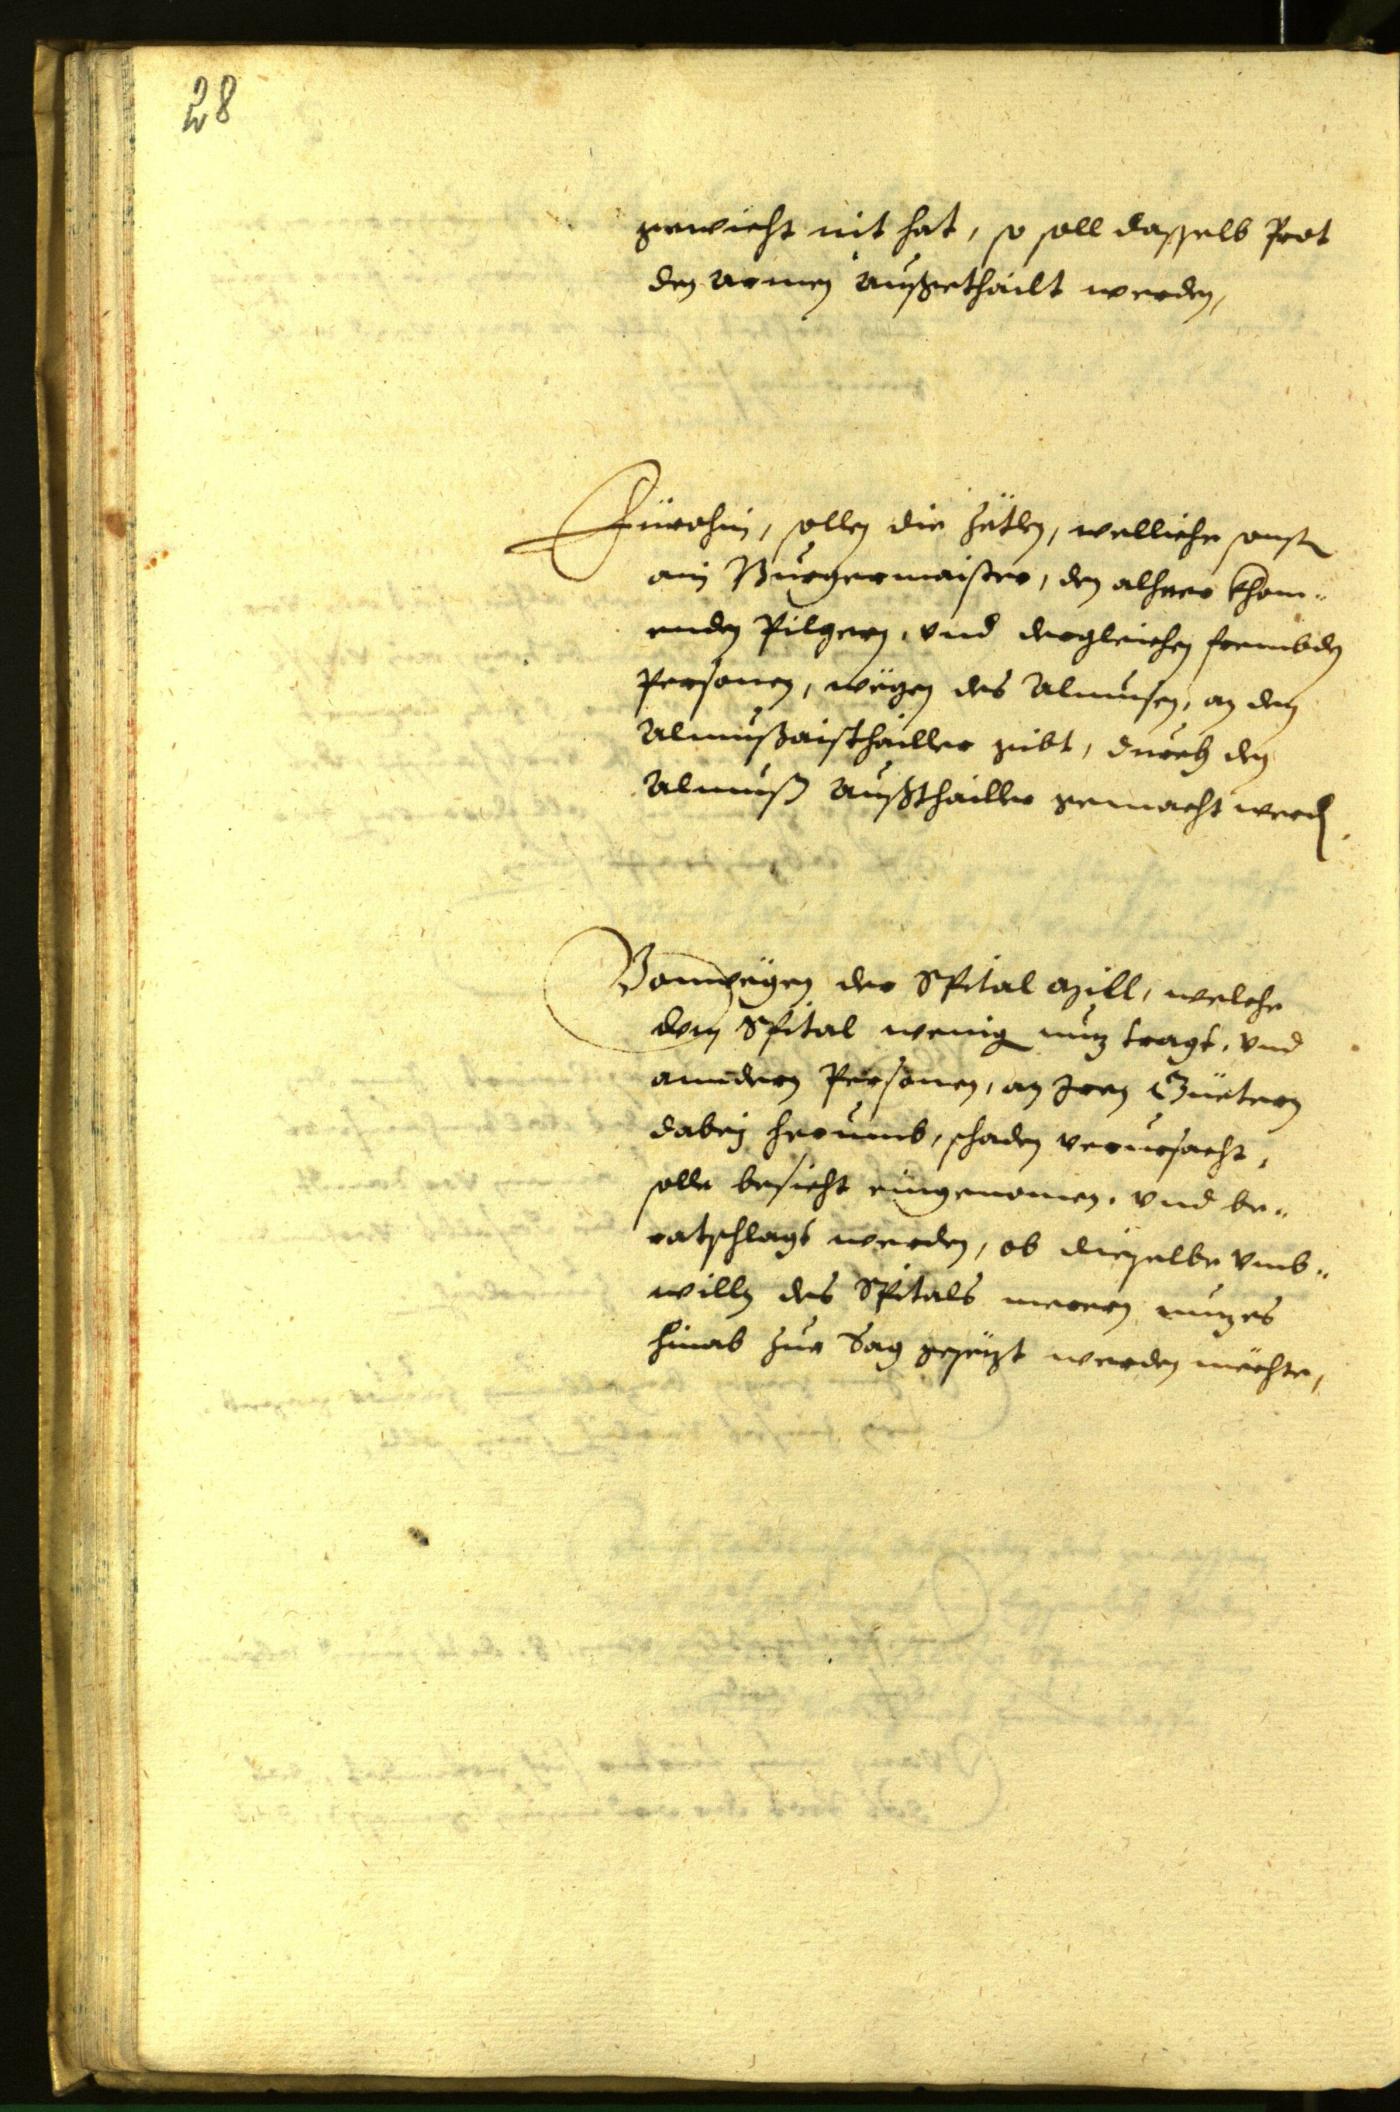 28
gewicht nit hat, so soll dasselb Prot
den armen außgethailt werden,
Fürohin, sollen die Zetlen, welliche sonst
ain Burgermaister, den alheer khom¬
enden Pilgern, vnd dergleichen frembden
Personen, wegen des Almusen, an den
Almußaisthailler gibt, durch den
Almuß außthailler gemacht werden.
Vonwegen der Spital Mill, welche
dem Spital wenig nuz tragt, vnd
anndern Personen, an Iren Güetern
dabey herumb, schaden verursacht,
solle besicht eingenomen, vnd be¬
ratschlagt werden, ob dieselbe vmb¬
willen des Spitals merern nuzes
hinab zur Sag gesezt werden mechte,